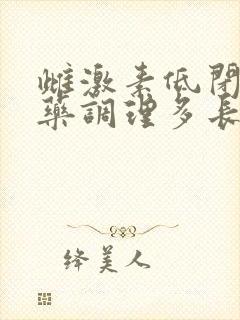 雌激素低閉
藥調理多長
絳美人